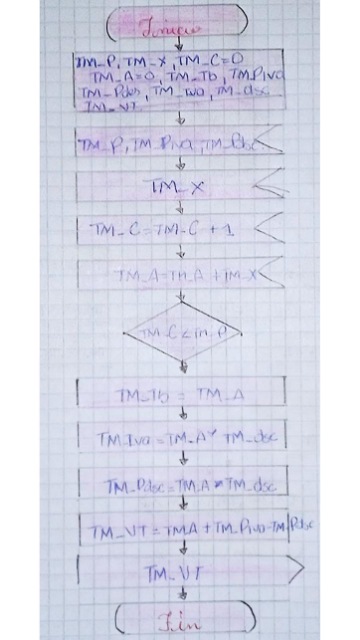 Inicio
TM_P, TM_X, TM_C=0
TM_A=0, TM_Tb, TM_Piva
TM_Pdes, TM_iva, TM_dsc
TM_VT
TM_P, TM_Piva, TM_Pdsc
TM_X
TM_C=TM_C + 1
TM_A=TM_A + TM_X
TM_C<TM_P
TM_Tb = TM_A
TM_Iva=TM_A* TM_dsc
TM_Pdsc=TM_A * TM_dsc
TM_VT = TM_A + TM_Piva-TM_Pdsc
TM_VT
Fin